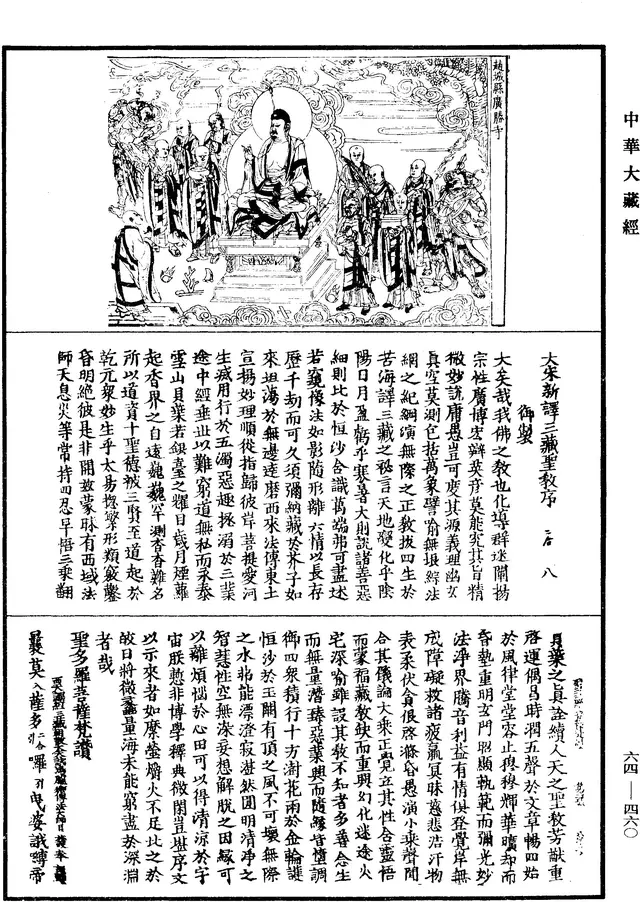 中華大藏經
六四—四六〇
趙城縣廣勝寺
大宋新譯三藏聖教序
御製
大矣哉我佛之教也化導群迷闡揚
宗性廣博宏辯英彥莫能究其旨精
微妙說庸愚豈可度其源義理幽玄
真空莫測包括萬象譬喻無垠綜法
網之紀綱演無際之正教拔四生於
苦海譯三藏之秘言天地變化乎陰
陽日月盈虧乎寒暑大則說諸善惡
細則比於恒沙含識萬端弗可盡述
若窺像法如影隨形離六情以長存
歷千劫而可久須彌納藏於芥子如
來坦蕩於無邊達磨西來法傳東土
宣揚妙理順從指歸彼岸菩提愛河
生滅用行於五濁惡趣拯溺於三業
途中經垂世以難窮道無私而永泰
雪山貝葉若銀臺之耀日歲月煙蘿
起香界之自遠巍巍罕測杳杳難名
所以道資十聖德被三賢至道起於
乾元衆妙生乎太易揔繁形類竅鑿
昏明絕彼是非開茲蒙昧有西域法
師天息災等常持四忍早悟三乘翻
貝葉之真詮續人天之聖教芳猷重
啓運偶昌時潤五聲於文章暢四始
於風律堂堂容止穆穆輝華曠却而
昏墊重明玄門昭顯軌範而彌光妙
法淨界騰音利益有情俱登覺岸無
成障礙救諸疲羸冥昧慈悲浩汗物
表柔伏貪很啓滌昏愚演小乘聲聞
合其儀論大乘正覺立其性含靈悟
而蒙福藏教缺而重興幻化迷途火
宅深喻雖設其教不知者多善念生
而無量潛臻惡業興而隨緣皆墮調
御四衆積行十方澍花雨於金輪護
恒沙於玉闕有頂之風不可壞無際
之水弗能漂澄寂湛然圓明清淨之
智慧性空無染妄想解脫之因緣可
以離煩惱於心田可以得清涼於宇
宙朕慙非博學釋典微閑豈堪序文
以示來者如縻螢爝火不足比之於
皎日將微蠡量海未能窮盡於深淵
者哉
聖多羅菩薩梵讚
曩莫入薩多二合引羅引曳婆誐嚩帝